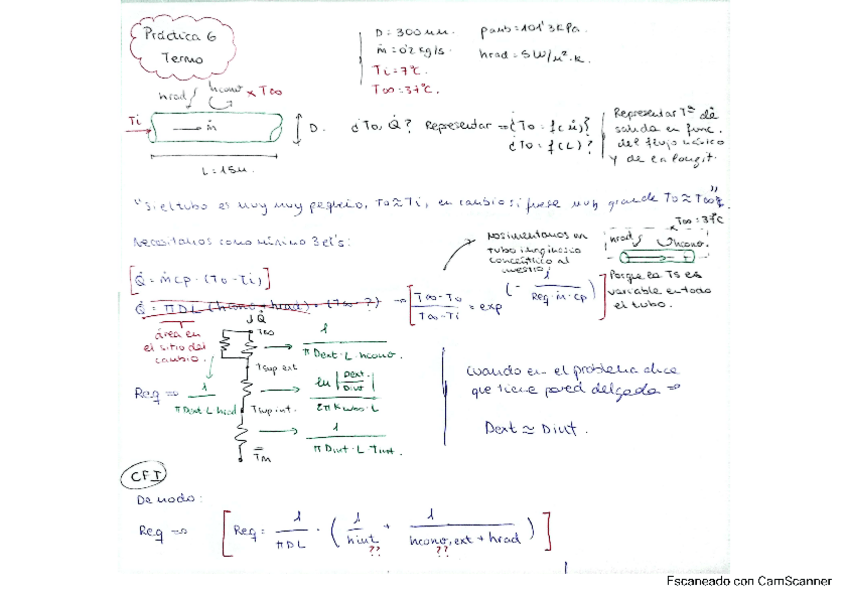 Práctica 6
Termo
D = 300 mm.
ṁ = 0'2 kg/s.
Ti = 7ºC.
T∞ = 37ºC.
pamb = 101'3 KPa.
hrad = 5 W/m².K.
hrad hconv T∞
Ti ṁ D.
L = 15m.
¿To, Q̇? Representar ⇒ ¿To = f(ṁ)?
¿To = f(L)?
Representar Tª de
salida en func.
del flujo másico
y de la longit.
"Si el tubo es muy muy pequeño, To≈Ti, en cambio si fuese muy grande To≈T∞".
Necesitamos como mínimo 3 ec's:
Nos inventamos un
tubo imaginario
concéntrico al
nuestro
T∞ = 37ºC
hrad hconv.
[Q̇ = ṁcp · (To - Ti)]
Q̇ = πDL (hconv + hrad) · (T∞ - ?) → [T∞ - To / T∞ - Ti = exp (- 1 / Req · ṁ · cp)]
Porque la Ts es
variable en todo
el tubo.
área en
el sitio del
cambio.
↓Q̇
T∞
1 / πDext · L · hconv.
Tsup ext
Req ⇒ 1 / πDext L hrad
ln |Dext / Dint| / 2πKtubo · L
Tsup int.
1 / πDint · L · Tint.
T̄m
Cuando en el problema dice
que tiene pared delgada ⇒
Dext ≃ Dint.
CFI
De modo:
Req ⇒ [Req = 1 / πDL · (1 / hint + 1 / hconv,ext + hrad)]
?? ??
Escaneado con CamScanner